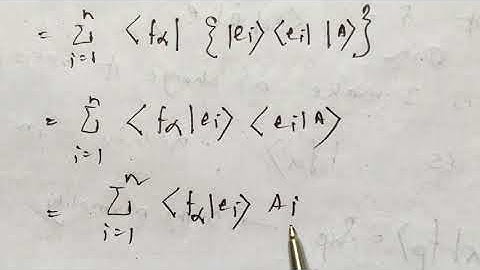 = Σ_{i=1}^{n} ⟨f_α| {|e_i⟩ ⟨e_i| |A⟩}
= Σ_{i=1}^{n} ⟨f_α|e_i⟩ ⟨e_i|A⟩
= Σ_{i=1}^{n} ⟨f_α|e_i⟩ A_i